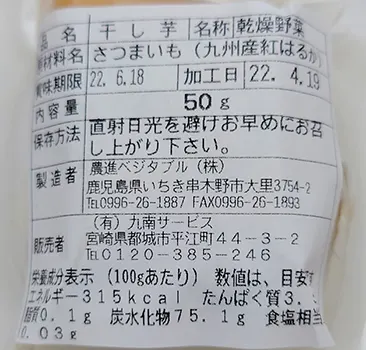 品 名 干し芋 名称 乾燥野菜
原材料名 さつまいも(九州産紅はるか
賞味期限 22. 6.18 加工日 22. 4.19
内容量 50g
保存方法 直射日光を避けお早めにお召
し上がり下さい。
製造者 農進ベジタブル(株)
鹿児島県いちき串木野市大里3754-2
TEL0996-26-1887 FAX0996-26-1893
販売者 (有)九南サービス
宮崎県都城市平江町44-3-2
TEL0120-385-246
栄養成分表示(100gあたり) 数値は、目安
エネルギー315kcal たんぱく質3.
脂質0.1g 炭水化物75.1g 食塩相
0.03g